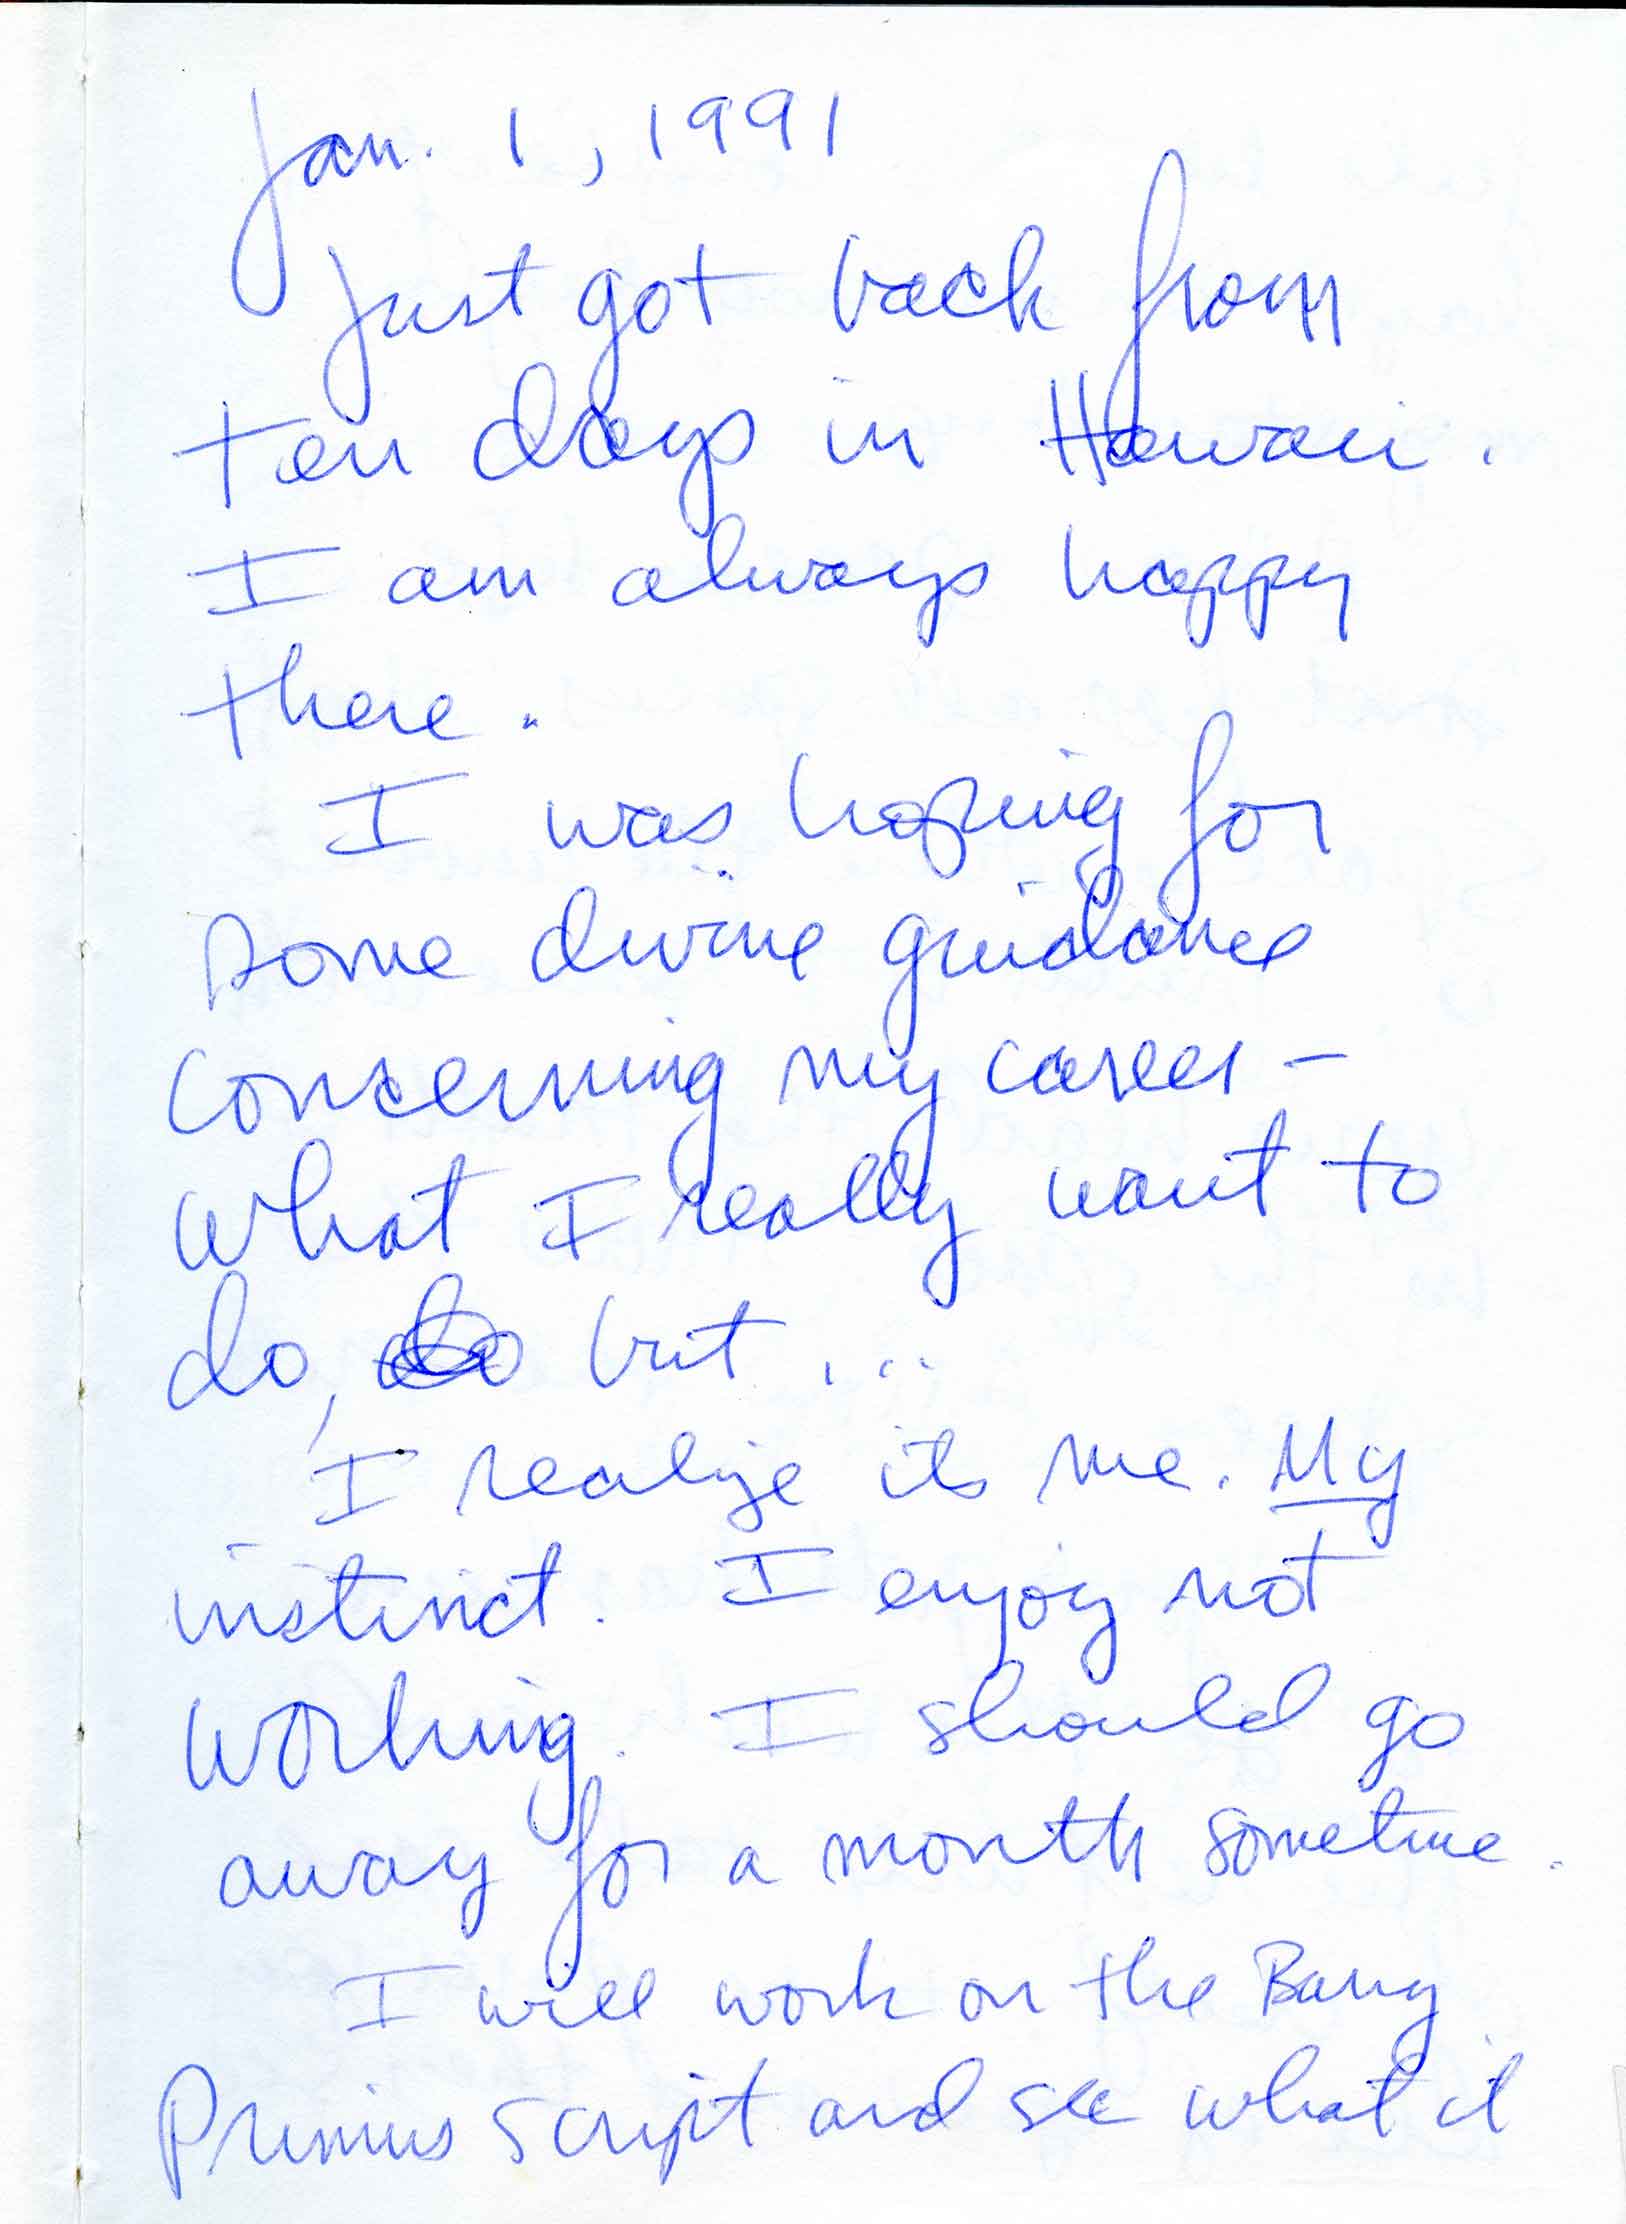 Jan. 1, 1991
Just got back from
ten days in Hawaii.
I am always happy
there.
I was hoping for
some divine guidance
concerning my career –
what I really want to
do, but ...
I realize its me. My
instinct. I enjoy not
working. I should go
away for a month sometime.
I will work on the Barry
Primus script and see what it